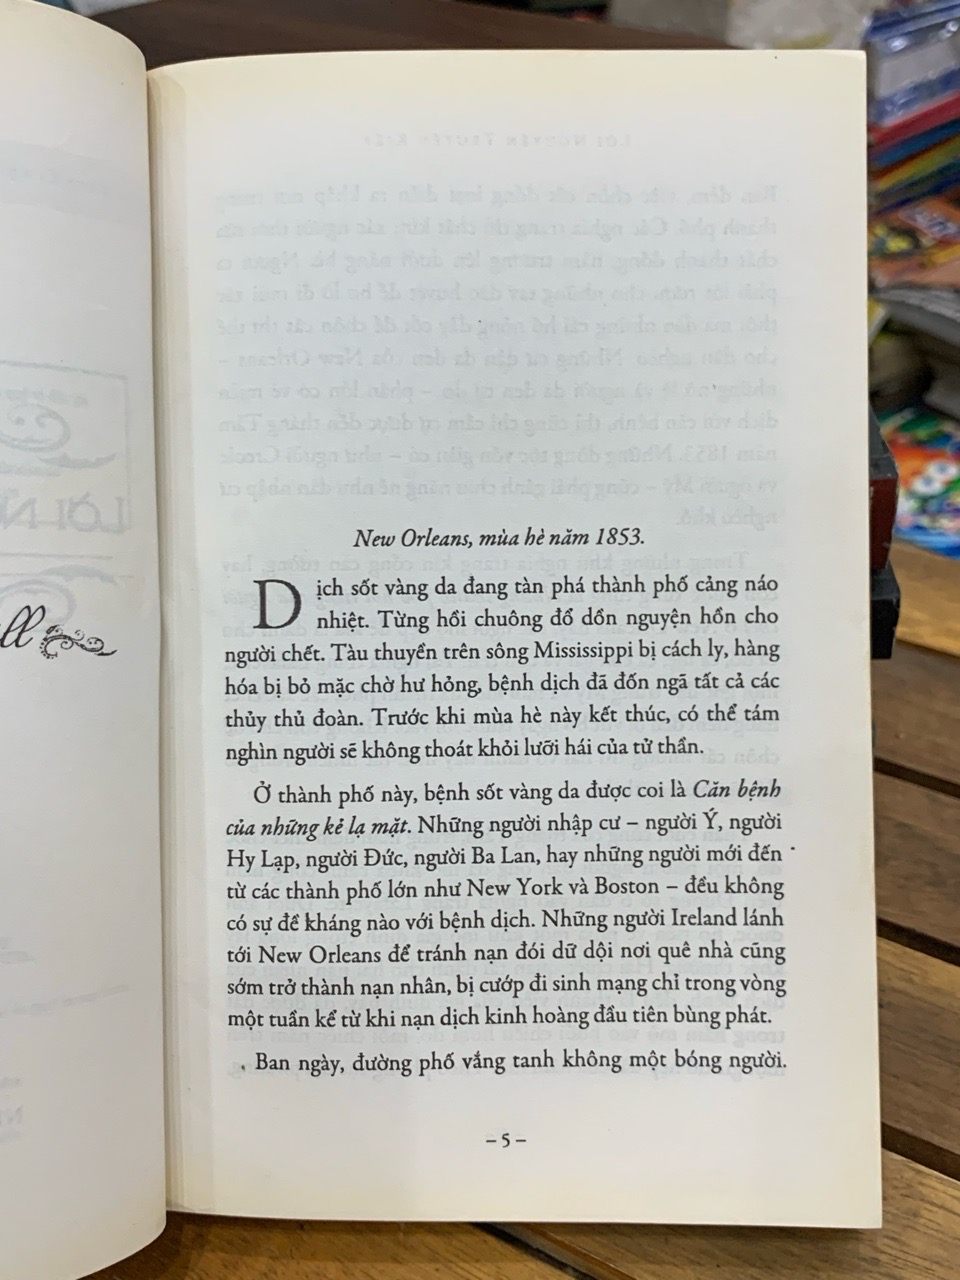 New Orleans, mùa hè năm 1853.
Dịch sốt vàng da đang tàn phá thành phố cảng náo
nhiệt. Từng hồi chuông đổ dồn nguyện hồn cho
người chết. Tàu thuyền trên sông Mississippi bị cách ly, hàng
hóa bị bỏ mặc chờ hư hỏng, bệnh dịch đã đốn ngã tất cả các
thủy thủ đoàn. Trước khi mùa hè này kết thúc, có thể tám
nghìn người sẽ không thoát khỏi lưỡi hái của tử thần.
Ở thành phố này, bệnh sốt vàng da được coi là Căn bệnh
của những kẻ lạ mặt. Những người nhập cư – người Ý, người
Hy Lạp, người Đức, người Ba Lan, hay những người mới đến
từ các thành phố lớn như New York và Boston – đều không
có sự đề kháng nào với bệnh dịch. Những người Ireland lánh
tới New Orleans để tránh nạn đói dữ dội nơi quê nhà cũng
sớm trở thành nạn nhân, bị cướp đi sinh mạng chỉ trong vòng
một tuần kể từ khi nạn dịch kinh hoàng đầu tiên bùng phát.
Ban ngày, đường phố vắng tanh không một bóng người.
– 5 –